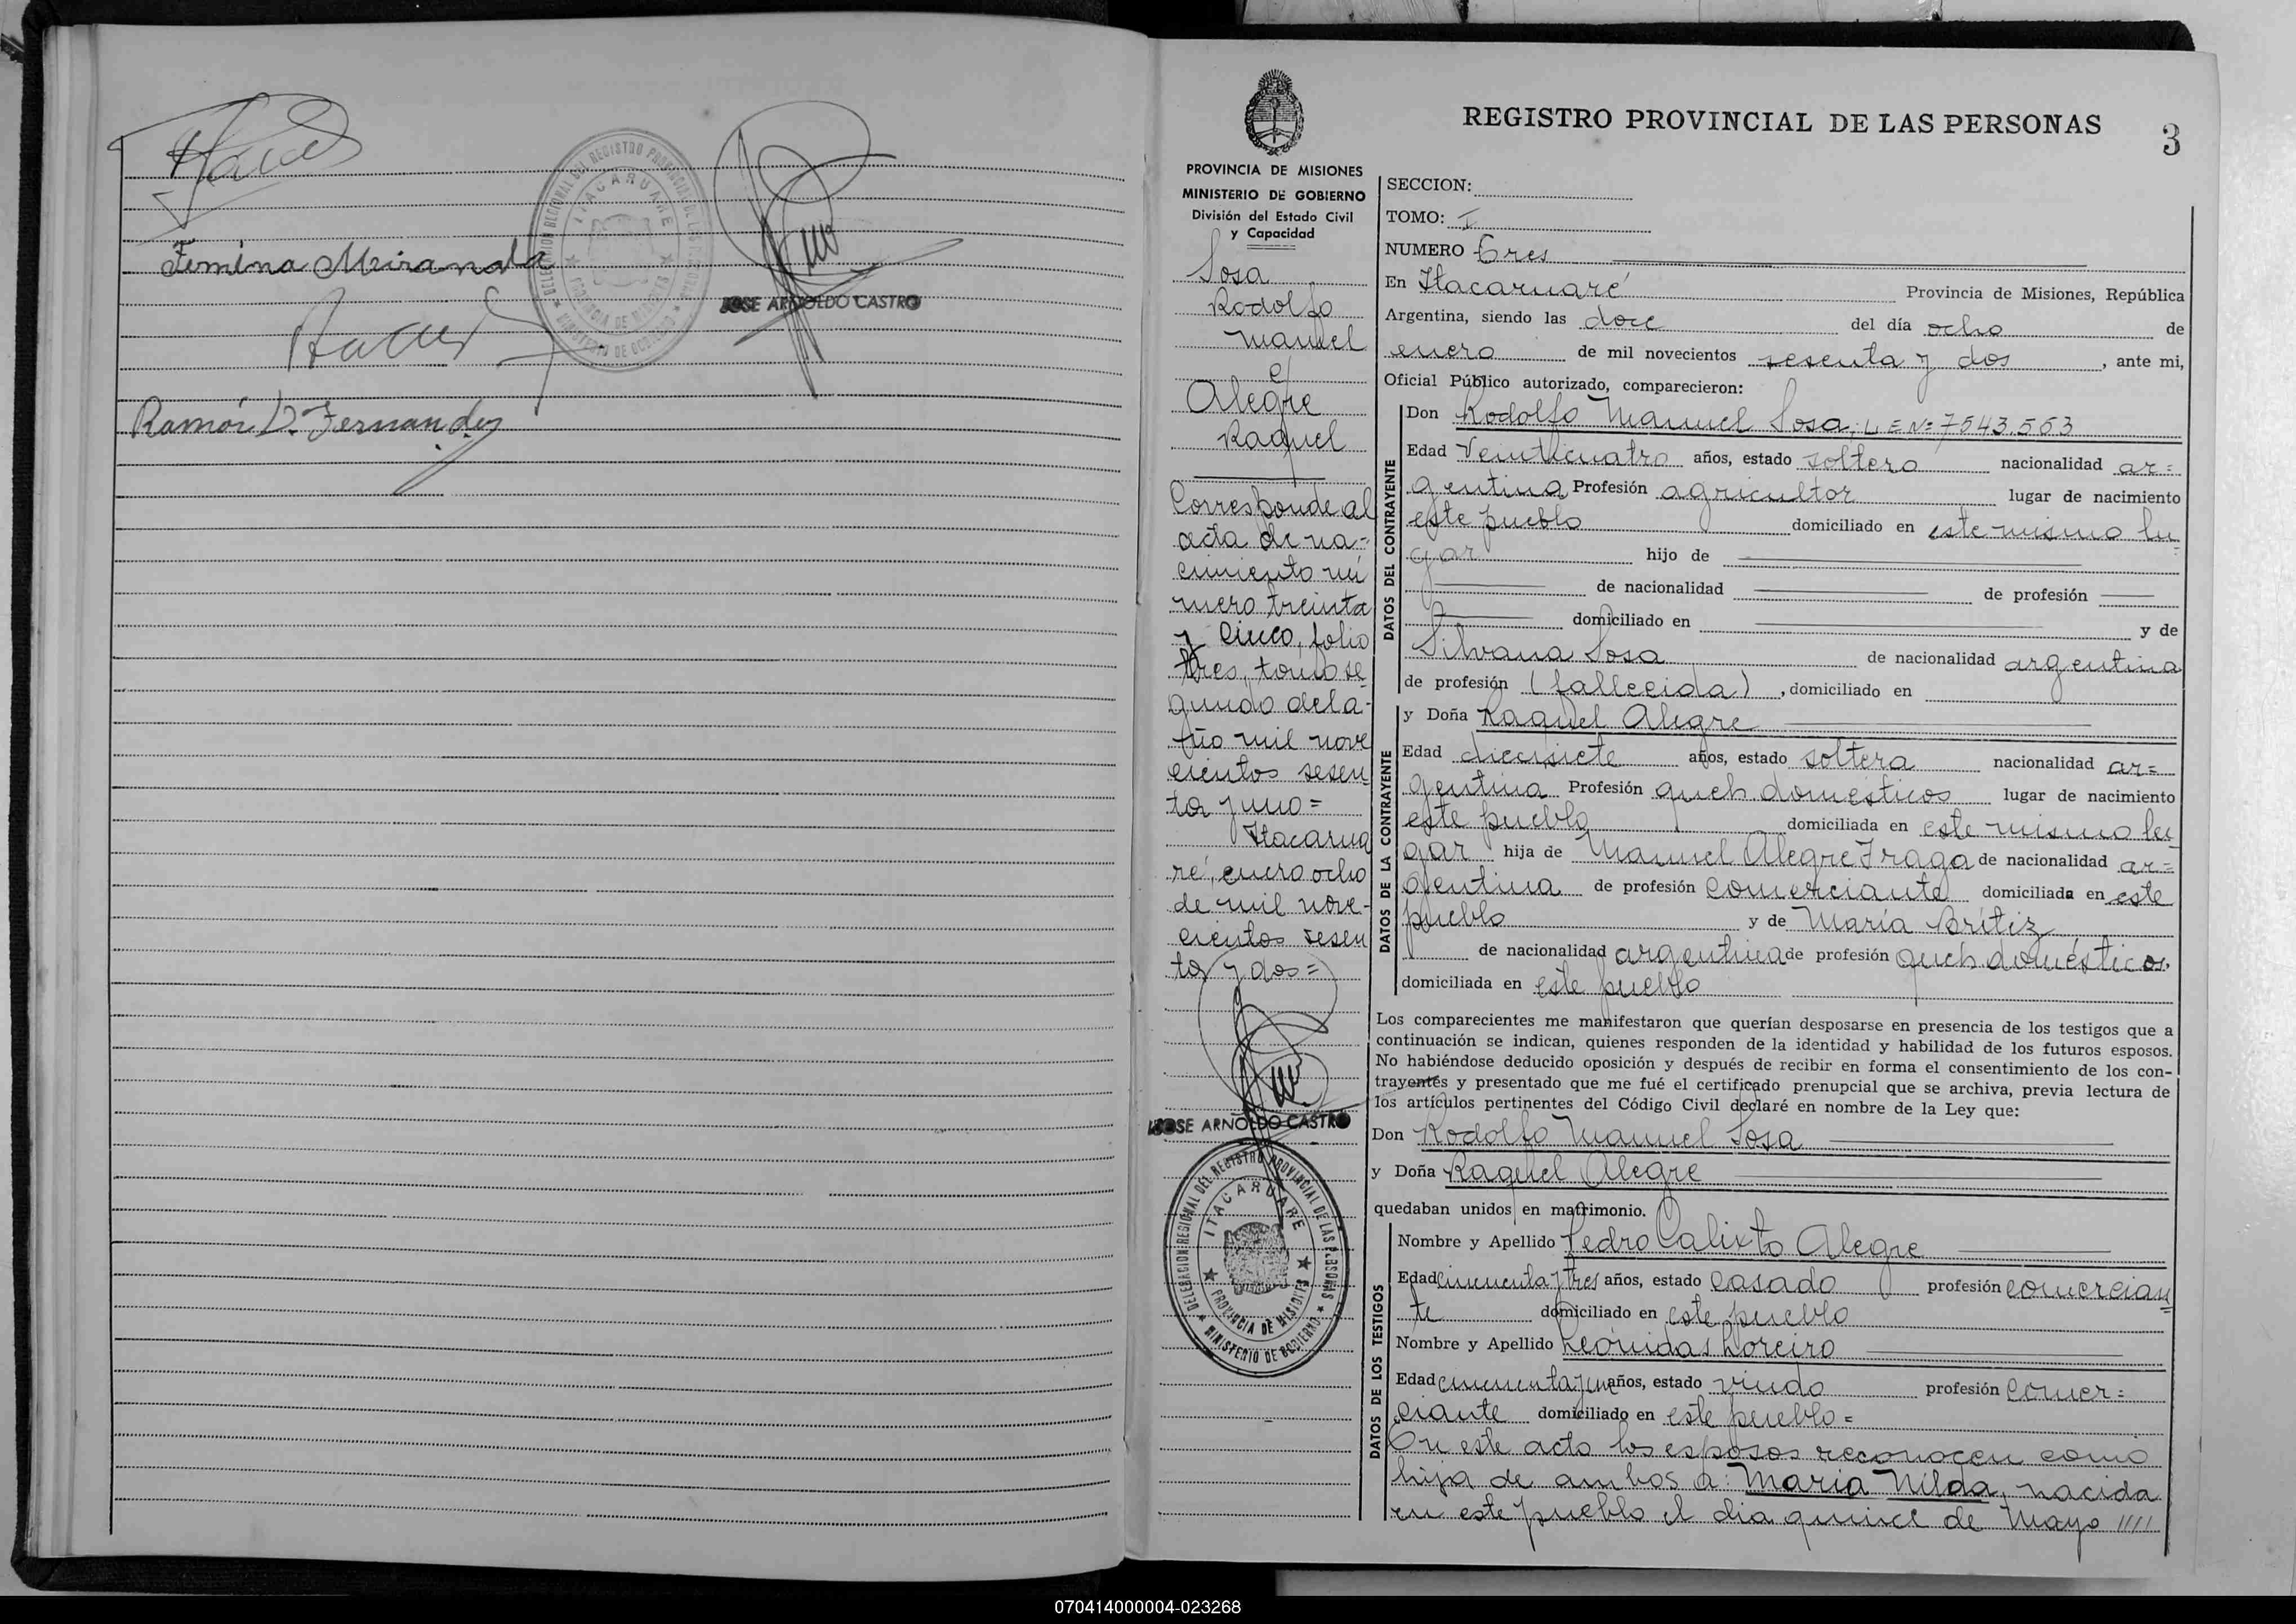 Femina Miranda
JOSE ARNOLDO CASTRO
Ramón D. Fernandez
DELEGACION REGIONAL DEL REGISTRO PROVINCIAL DE LAS PERSONAS
ITACARUARE
PROVINCIA DE MISIONES
MINISTERIO DE GOBIERNO
PROVINCIA DE MISIONES
MINISTERIO DE GOBIERNO
División del Estado Civil
y Capacidad
Sosa
Rodolfo
Manuel
c/
Alegre
Raquel
Corresponde al
acta de na-
cimiento nú
mero treinta
y cinco, folio
tres, tomo se
gundo del a-
ño mil nove
cientos sesen
ta y uno =
Itacarua
ré, enero ocho
de mil nove-
cientos sesen
ta y dos =
JOSE ARNOLDO CASTRO
DELEGACION REGIONAL DEL REGISTRO PROVINCIAL DE LAS PERSONAS
ITACARUARE
PROVINCIA DE MISIONES
MINISTERIO DE GOBIERNO
REGISTRO PROVINCIAL DE LAS PERSONAS 3
SECCION:
TOMO: I
NUMERO Tres
En Itacaruaré Provincia de Misiones, República
Argentina, siendo las doce del día ocho de
enero de mil novecientos sesenta y dos, ante mi,
Oficial Público autorizado, comparecieron:
DATOS DEL CONTRAYENTE
Don Rodolfo Manuel Sosa, L E Nº 7543.563
Edad Veinticuatro años, estado soltero nacionalidad ar=
gentina Profesión agricultor lugar de nacimiento
este pueblo domiciliado en este mismo lu
gar hijo de
de nacionalidad de profesión
domiciliado en y de
Silvana Sosa de nacionalidad argentina
de profesión (fallecida), domiciliado en
DATOS DE LA CONTRAYENTE
y Doña Raquel Alegre
Edad diecisiete años, estado soltera nacionalidad ar=
gentina Profesión queh. domesticos lugar de nacimiento
este pueblo domiciliada en este mismo lu
gar hija de Manuel Alegre Fraga de nacionalidad ar=
gentina de profesión comerciante domiciliada en este
pueblo y de María Brítiz
de nacionalidad argentina de profesión queh. domésticos,
domiciliada en este pueblo
Los comparecientes me manifestaron que querían desposarse en presencia de los testigos que a
continuación se indican, quienes responden de la identidad y habilidad de los futuros esposos.
No habiéndose deducido oposición y después de recibir en forma el consentimiento de los con-
trayentes y presentado que me fué el certificado prenupcial que se archiva, previa lectura de
los artículos pertinentes del Código Civil declaré en nombre de la Ley que:
Don Rodolfo Manuel Sosa
y Doña Raquel Alegre
quedaban unidos en matrimonio.
DATOS DE LOS TESTIGOS
Nombre y Apellido Pedro Calixto Alegre
Edad cincuenta y tres años, estado casado profesión comercian
te domiciliado en este pueblo
Nombre y Apellido Leónidas Loreiro
Edad cincuenta y un años, estado viudo profesión comer=
ciante domiciliado en este pueblo =
En este acto los esposos reconocen como
hija de ambos a: Maria Nilda, nacida
en este pueblo el dia quince de Mayo ////
070414000004-023268